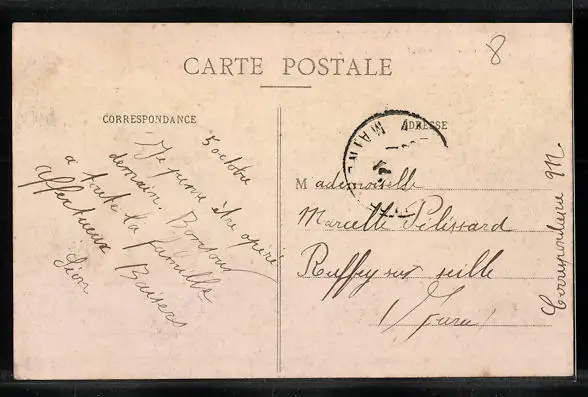 8
CARTE POSTALE
CORRESPONDANCE
5 octobre
Je pense être opéré
demain. Bonjour
a toute la famille
Baisers
affectueux
Léon
ADRESSE
MAINE
Mademoiselle
Marcelle Pélissard
Ruffey sur seille
Jura
Correspondance M.